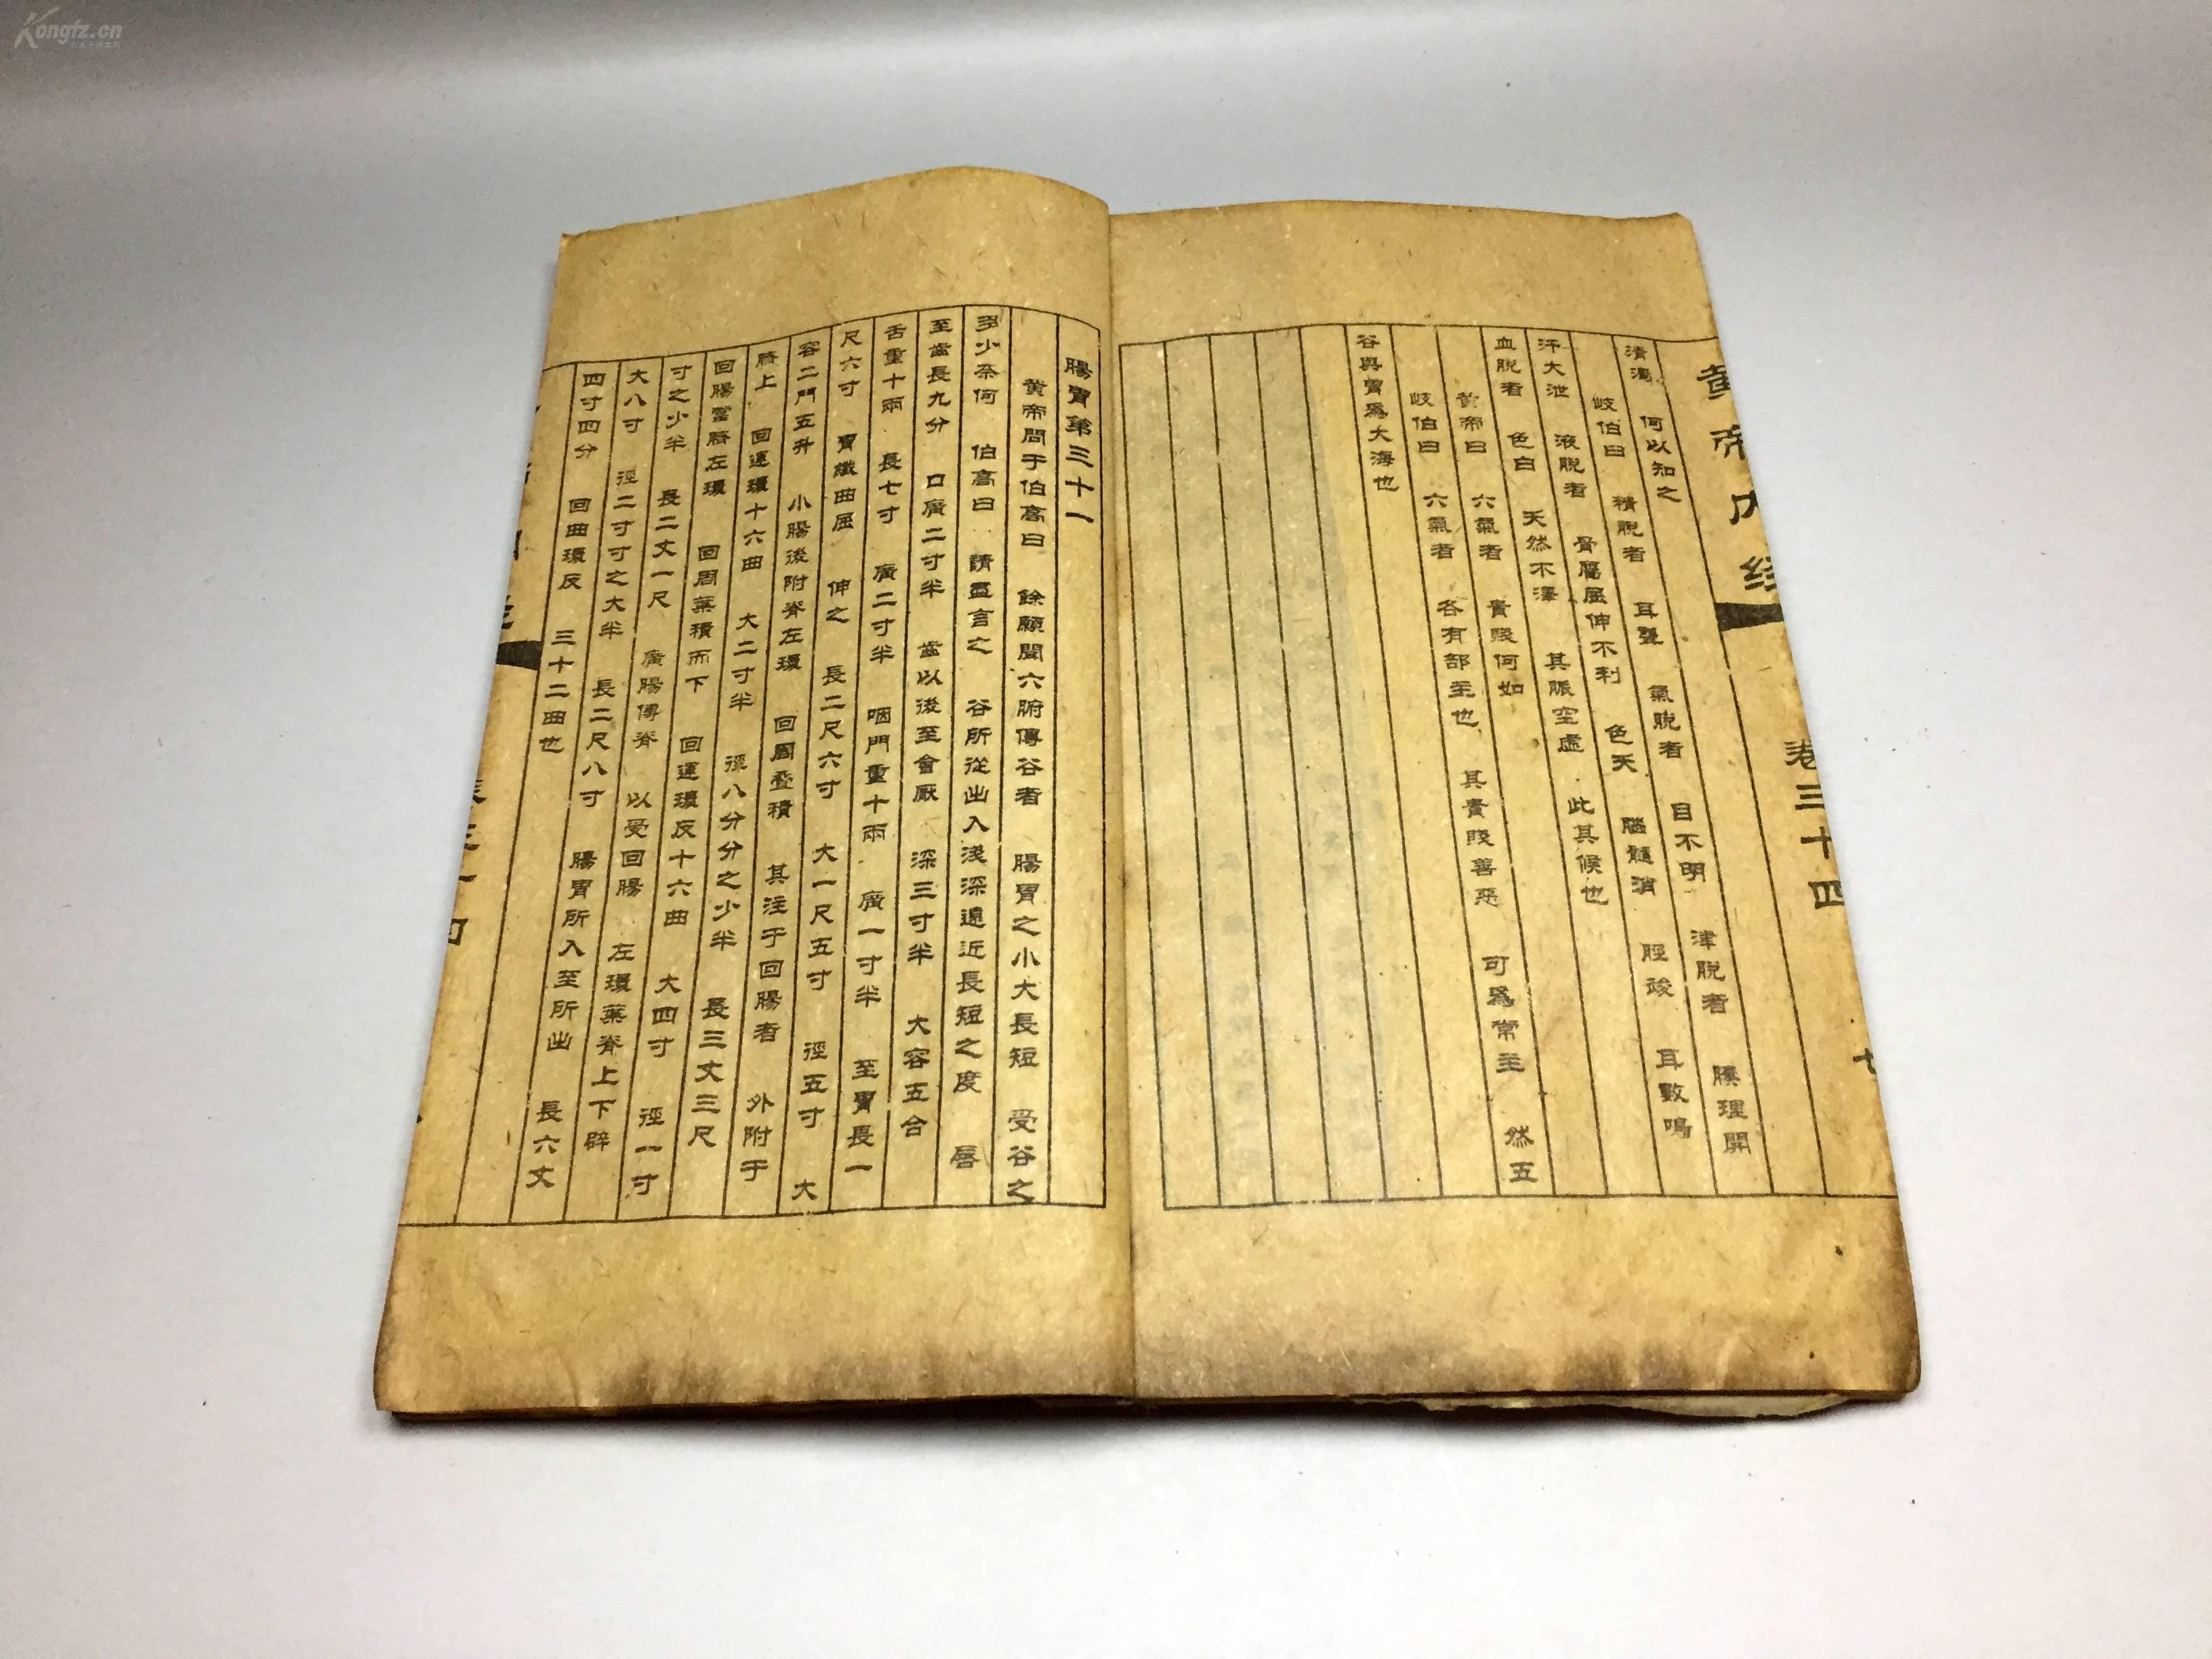 Kongfz.cn
孔夫子旧书网
黄帝内经
卷三十四
清濁 何以知之
岐伯曰 精脱者 耳聾 氣脱者 目不明 津脱者 腠理開
汗大泄 液脱者 骨屬屈伸不利 色夭 腦髓消 脛痠 耳數鳴
血脱者 色白 天然不澤 其脈空虛 此其候也
黄帝曰 六氣者 貴賤何如
岐伯曰 六氣者 各有部主也 其貴賤善惡 可爲常主 然五
谷與胃爲大海也
腸胃第三十一
黄帝問于伯高曰 餘願聞六腑傳谷者 腸胃之小大長短 受谷之
多少奈何 伯高曰 請盡言之 谷所從出入淺深遠近長短之度 唇
至齒長九分 口廣二寸半 齒以後至會厭 深三寸半 大容五合
舌重十兩 長七寸 廣二寸半 咽門重十兩 廣一寸半 至胃長一
尺六寸 胃纖曲屈 伸之 長二尺六寸 大一尺五寸 徑五寸 大
容二鬥五升 小腸後附脊左環 回周疊積 其注于回腸者 外附于
臍上 回運環十六曲 大二寸半 徑八分分之少半 長三丈三尺
回腸當臍左環 回周葉積而下 回運環反十六曲 大四寸 徑一寸
寸之少半 長二丈一尺 廣腸傳脊 以受回腸 左環葉脊上下辟
大八寸 徑二寸寸之大半 長二尺八寸 腸胃所入至所出 長六丈
四寸四分 回曲環反 三十二曲也